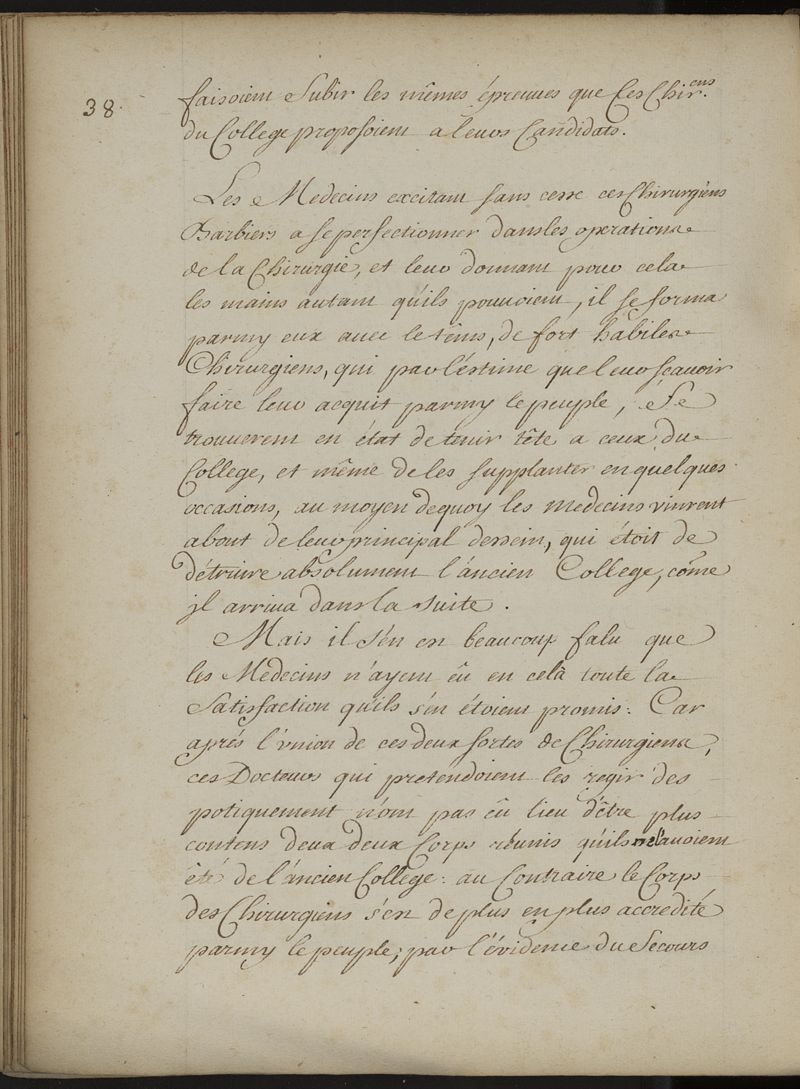 38.
faisoient Subir les mêmes épreuves que Ces Chir.ens
du College proposoient a leurs Candidats.
Les Medecins excitant sans cesse ces Chirurgiens
Barbiers a se perfectionner dans les operations
de la Chirurgie, et leur donnant pour cela
les mains autant qu'ils pouvoient, il se forma
parmy eux avec le têms, de fort habiles
Chirurgiens, qui par l'éstime que leur scavoir
faire leur acquit parmy le peuple, Se
trouverent en état de tenir tête a ceux du
College, et même de les supplanter en quelques
occasions, au moyen dequoy les Medecins vinrent
about de leur principal dessein, qui étoit de
détruire absolument l'áncien College, côme
jl arriva dans la suite.
Mais il s'én est beaucoup falu que
les Medecins n'ayent êu en celà toute la
Satisfaction qu'ils s'én étoient promis. Car
aprés l'vnion de ces deux sortes de Chirurgiens,
ces Docteurs qui pretendoient les regir des
potiquement n'ont pas êu lieu d'être plus
contens deux deux Corps réunis qu'ils ne l'avoient
été de l'áncien College: au Contraire le Corps
des Chirurgiens s'ést de plus en plus accredité
parmy le peuple; par l'évidence du Secours